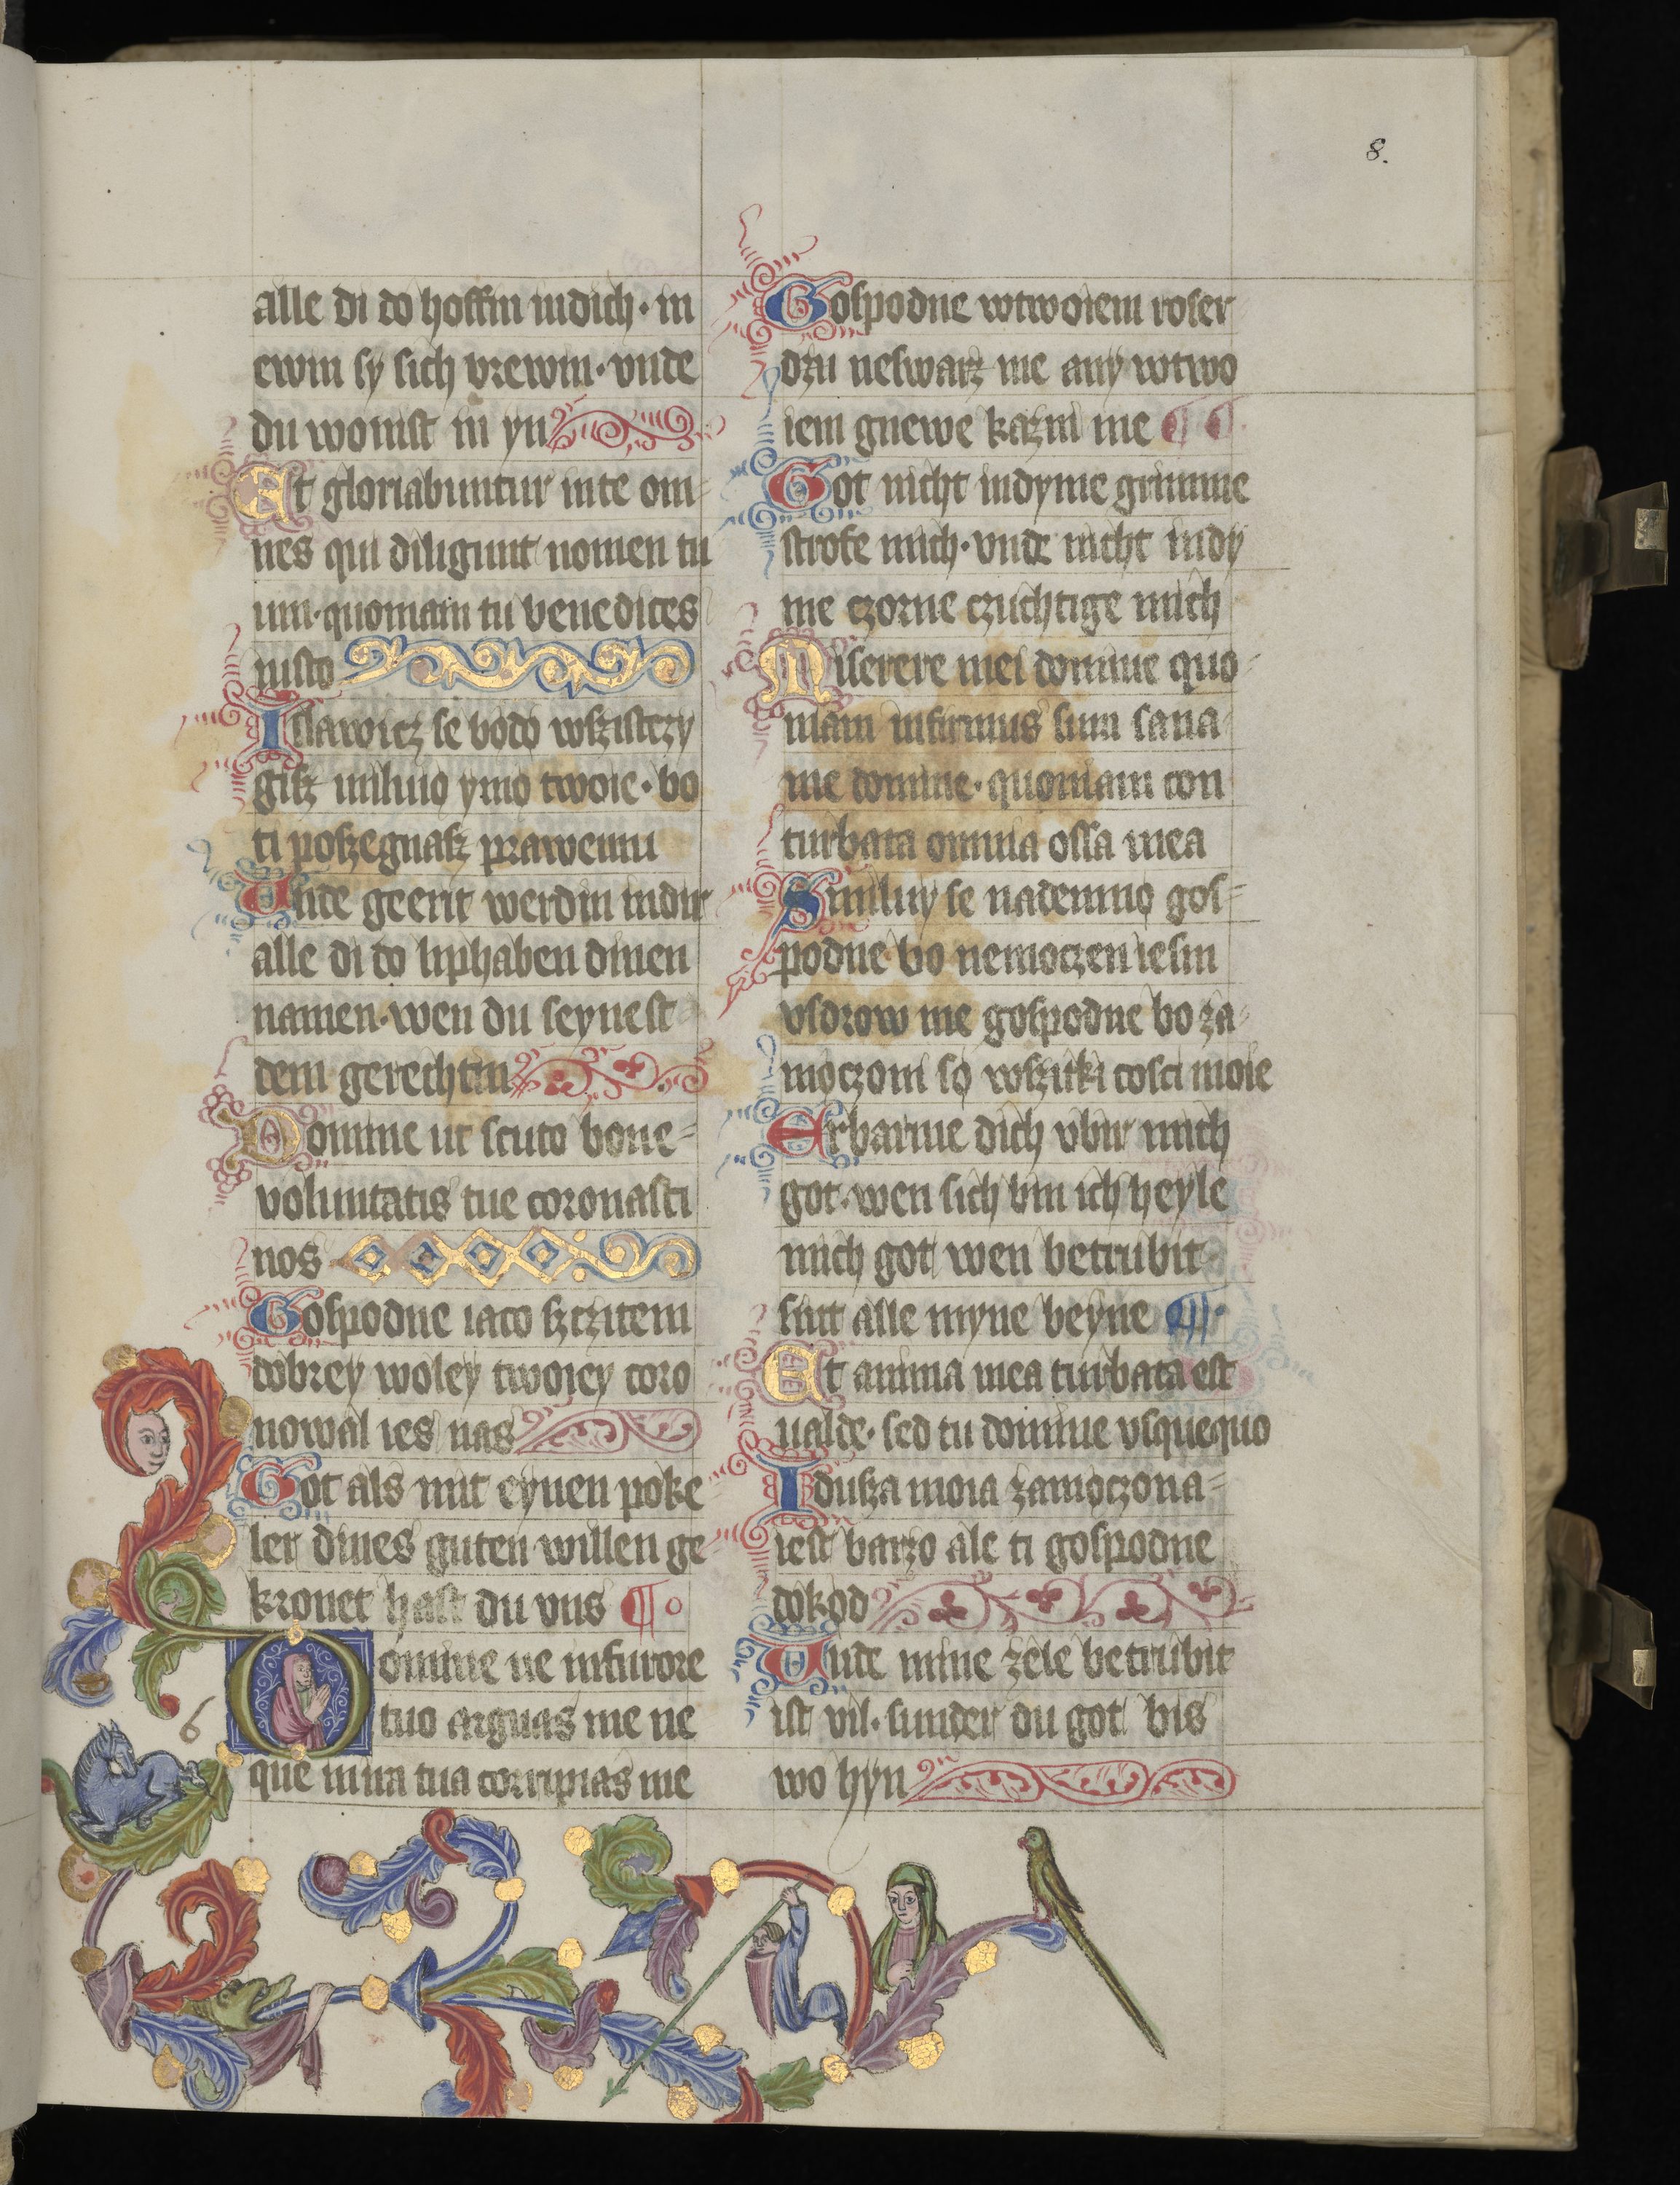 8.
alle di do hoffin indich · in
ewin sy sich vrewin · vnde
du wonist in yn
Et gloriabuntur inte om⸗
nes qui diligunt nomen tu
um · quoniam tu benedices
iusto
I slawicz se bodo wszistczy
gisz miluio ymo twoie · bo
ti poszegnasz prawemu
Unde geerit werdin indir
alle di do liphaben dinen
namen · wen du seynest
dem gerechtin
Domine ut scuto bone⸗
voluntatis tue coronasti
nos
Gospodne iaco szczitem
dobrey woley twoiey coro
nowal ies nas
Got als mit eynen poke
ler dines guten willen ge⸗
kronet hast du vns ¶
6
Domine ne infurore
tuo arguas me ne
que inira tua corripias me
Gospodne wtwoiem roser
dzu neswarz me any wtwo
iem gnewe kazni me ¶ ¶
Got nicht indyme grimme
strofe mich · vnde nicht indy
me czorne czuchtige mich
Miserere mei domine quo⸗
niam infirmus sum sana
me domine · quoniam con
turbata omnia ossa mea
Smiluy se nademno gos⸗
podne bo nemoczen iesm
vsdrow me gospodne bo za⸗
moczoni so wszitki cosci moie
Erbarme dich vbir mich
got · wen sich bin ich heyle
mich got wen betrubit
sint alle myne beyne ¶
Et anima mea turbata est
ualde · sed tu domine vsquequo
I dusza moia zamoczona⸗
iest barzo ale ti gospodne
dokod
Unde mine zele betrubit
ist vil · sunder du got bis
wo hyn